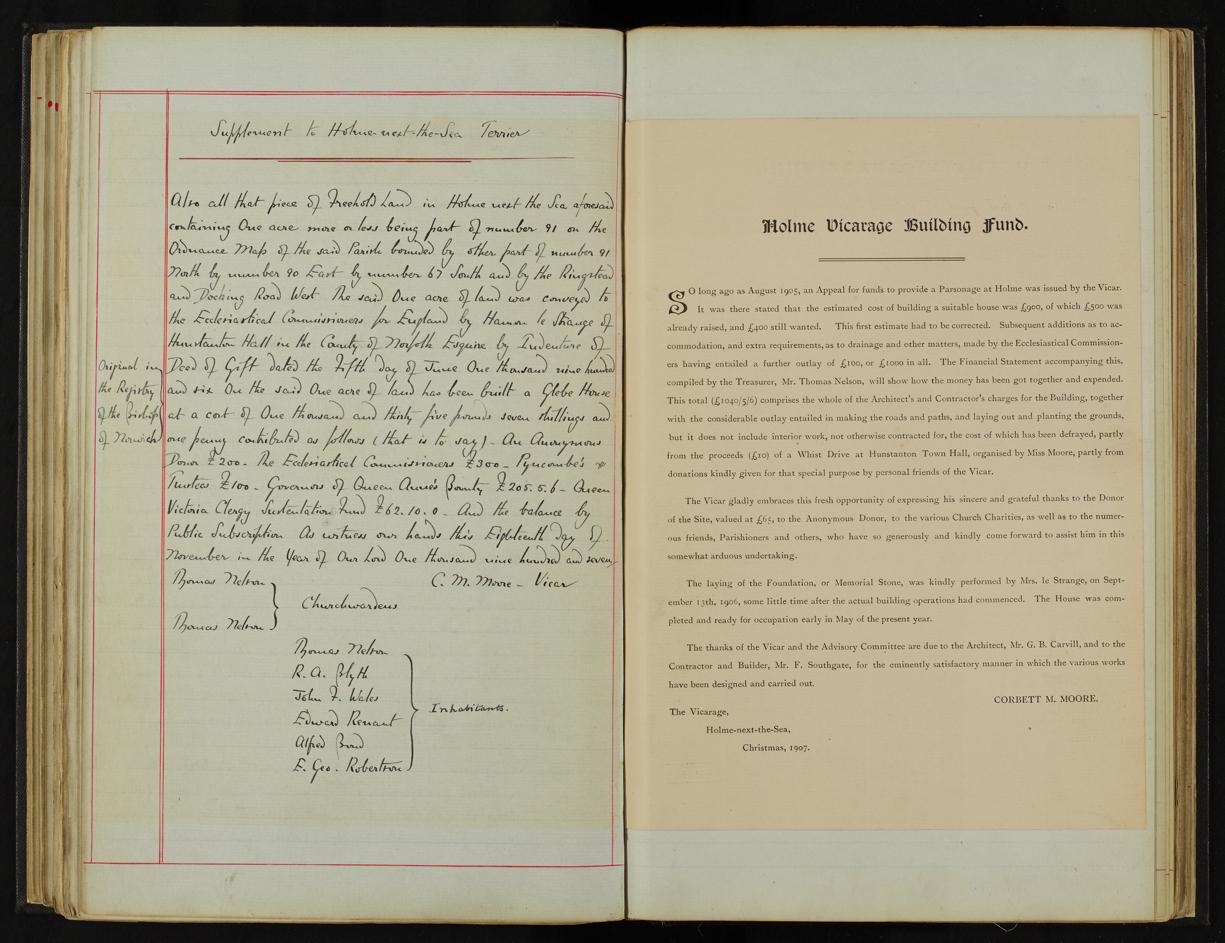 Supplement to Holme-next-the-Sea Terrier
Also all that piece of Freehold Land in Holme next the Sea aforesaid
containing One acre more or less being part of number 91 on the
Ordnance Map of the said Parish bounded by other part of number 91
North by number 90 East by number 67 South and by the Ringstead
and Docking Road West. The said One acre of land was conveyed to
the Ecclesiastical Commissioners for England by Hamon le Strange of
Hunstanton Hall in the County of Norfolk Esquire by Indenture of
Deed of Gift dated the Fifth day of June One thousand nine hundred
and six On the said One acre of land has been built a Glebe House
at a cost of One thousand and thirty five pounds seven shillings and
one penny contributed as follows (that is to say) - An Anonymous
Donor £200 - The Ecclesiastical Commissioners £300 - Pyncombe's
Trustees £100 - Governors of Queen Anne's Bounty £205.5.6 - Queen
Victoria Clergy Sustentation Fund £62.10.0 - And the balance by
Public Subscription As witness our hands this Eighteenth day of
November in the Year of Our Lord One thousand nine hundred and seven,
Original in
the Registry
of the Bishop
of Norwich
Thomas Nelson
C. M. Moore - Vicar
Churchwardens
Thomas Nelson
Thomas Nelson
R. A. Blyth
John F. Wales
Inhabitants.
Edward Renaut
Alfred Bond
E. Geo. Robertson
Holme Vicarage Building Fund.
SO long ago as August 1905, an Appeal for funds to provide a Parsonage at Holme was issued by the Vicar.
It was there stated that the estimated cost of building a suitable house was £900, of which £500 was
already raised, and £400 still wanted. This first estimate had to be corrected. Subsequent additions as to ac-
commodation, and extra requirements, as to drainage and other matters, made by the Ecclesiastical Commission-
ers having entailed a further outlay of £100, or £1000 in all. The Financial Statement accompanying this,
compiled by the Treasurer, Mr. Thomas Nelson, will show how the money has been got together and expended.
This total (£1040/5/6) comprises the whole of the Architect's and Contractor's charges for the Building, together
with the considerable outlay entailed in making the roads and paths, and laying out and planting the grounds,
but it does not include interior work, not otherwise contracted for, the cost of which has been defrayed, partly
from the proceeds (£10) of a Whist Drive at Hunstanton Town Hall, organised by Miss Moore, partly from
donations kindly given for that special purpose by personal friends of the Vicar.
The Vicar gladly embraces this fresh opportunity of expressing his sincere and grateful thanks to the Donor
of the Site, valued at £65, to the Anonymous Donor, to the various Church Charities, as well as to the numer-
ous friends, Parishioners and others, who have so generously and kindly come forward to assist him in this
somewhat arduous undertaking.
The laying of the Foundation, or Memorial Stone, was kindly performed by Mrs. le Strange, on Sept-
ember 13th, 1906, some little time after the actual building operations had commenced. The House was com-
pleted and ready for occupation early in May of the present year.
The thanks of the Vicar and the Advisory Committee are due to the Architect, Mr. G. B. Carvill, and to the
Contractor and Builder, Mr. F. Southgate, for the eminently satisfactory manner in which the various works
have been designed and carried out.
CORBETT M. MOORE.
The Vicarage,
Holme-next-the-Sea,
Christmas, 1907.